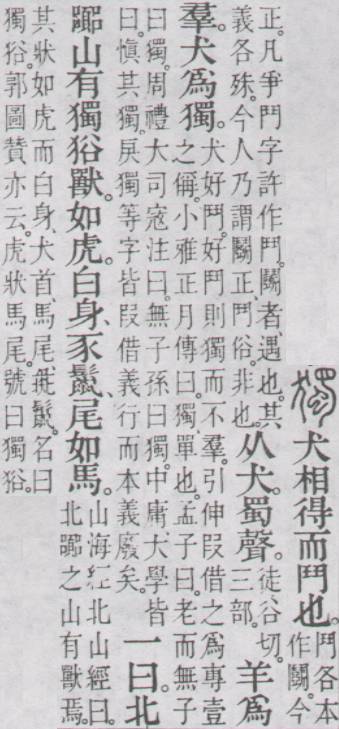 獨犬相得而鬥也。鬥各本作鬭。今
正。凡爭鬥字許作鬥。鬭者、遇也。其義各殊。今人乃謂鬭正、鬥俗。非也。从犬。蜀聲。徒谷切。三部。羊爲
羣。犬爲獨。犬好鬥。好鬥則獨而不羣。引伸叚借之爲專壹之偁。小雅正月傳曰。獨單也。孟子曰。老而無子
曰獨。周禮大司寇注曰。無子孫曰獨。中庸、大學皆曰。慎其獨。戾獨等字皆叚借義行而本義廢矣。一曰。北
嚻山有獨𤞞獸。如虎。白身、豕鬣、尾如馬。山海經北山經曰。北嚻之山有獸焉。
其狀如虎而白身、犬首、馬尾、彘鬣。名曰獨𤞞。郭圖贊亦云。虎狀馬尾。號曰獨𤞞。